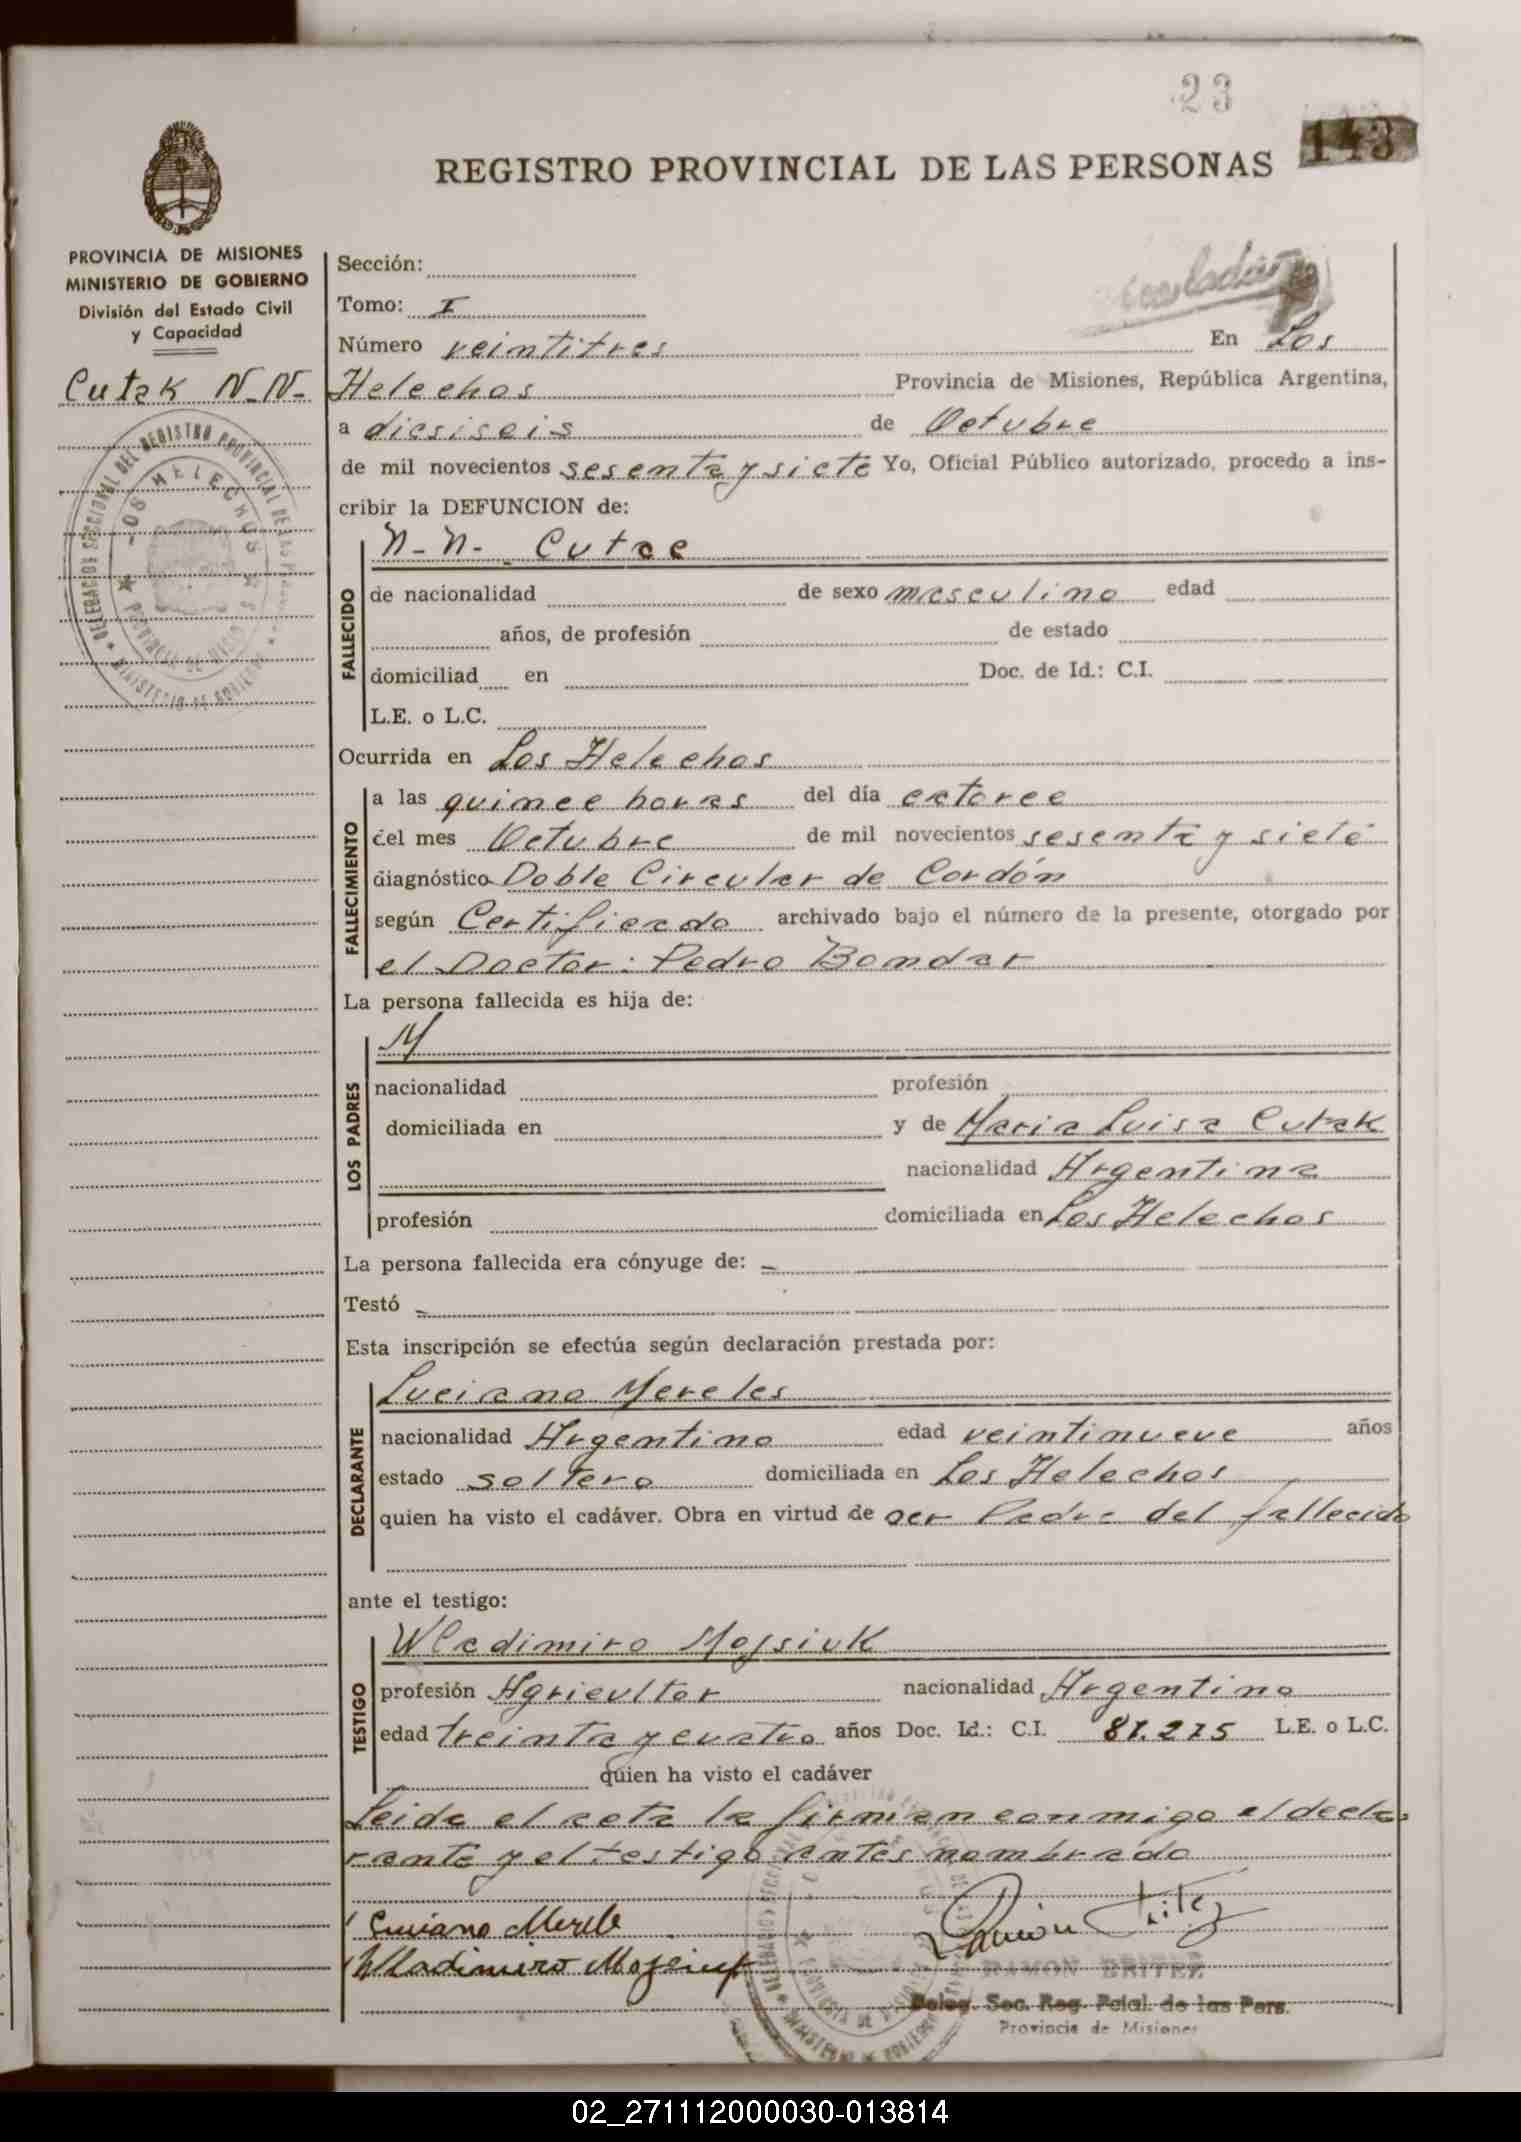 23
143
REGISTRO PROVINCIAL DE LAS PERSONAS
PROVINCIA DE MISIONES
MINISTERIO DE GOBIERNO
División del Estado Civil
y Capacidad
Cutak N.N.
Sección:
Tomo: I
Número veintitres En Los
Helechos Provincia de Misiones, República Argentina,
a diesiseis de Octubre
de mil novecientos sesenta y siete Yo, Oficial Público autorizado, procedo a ins-
cribir la DEFUNCION de:
FALLECIDO
N-N- Cutac
de nacionalidad de sexo masculino edad
años, de profesión de estado
domiciliad en Doc. de Id.: C.I.
L.E. o L.C.
Ocurrida en Los Helechos
FALLECIMIENTO
a las quince horas del día catorce
del mes Octubre de mil novecientos sesenta y siete
diagnóstico Doble Circular de Cordón
según Certificado archivado bajo el número de la presente, otorgado por
el Doctor: Pedro Bondar
La persona fallecida es hija de:
LOS PADRES
nacionalidad profesión
domiciliada en y de Maria Luisa Cutak
nacionalidad Argentina
profesión domiciliada en Los Helechos
La persona fallecida era cónyuge de: -
Testó -
Esta inscripción se efectúa según declaración prestada por:
DECLARANTE
Luciano Mereles
nacionalidad Argentino edad veintinueve años
estado soltero domiciliada en Los Helechos
quien ha visto el cadáver. Obra en virtud de ser Padre del fallecido
ante el testigo:
TESTIGO
Wladimiro Mojsiuk
profesión Agricultor nacionalidad Argentino
edad treinta y cuatro años Doc. Id.: C.I. 81.215 L.E. o L.C.
quien ha visto el cadáver
Leida el acta la firman conmigo el decla
rante y el testigo antes nombrado
Luciano Merele
Wladimiro Mojsiuk
Ramón Britez
RAMON BRITEZ
Deleg. Sec. Reg. Pcial. de las Pers.
Provincia de Misiones
DELEGACION SECCIONAL DEL REGISTRO PROVINCIAL DE LAS
LOS HELECHOS
PROVINCIA DE MISIONES
MINISTERIO DE GOBIERNO
02_271112000030-013814